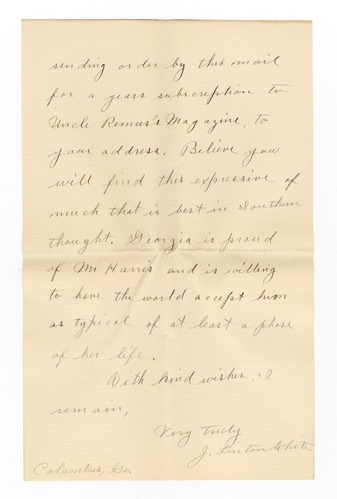 sending order by this mail
for a years subscription to
Uncle Remus's Magazine, to
your address. Believe you
will find this expressive of
much that is best in Southern
thought. Georgia is proud
of Mr Harris and is willing
to have the world accept him
as typical of at least a phase
of her life.
With kind wishes, I
remain,
Very truly
J. Linton White
Columbus, Ga